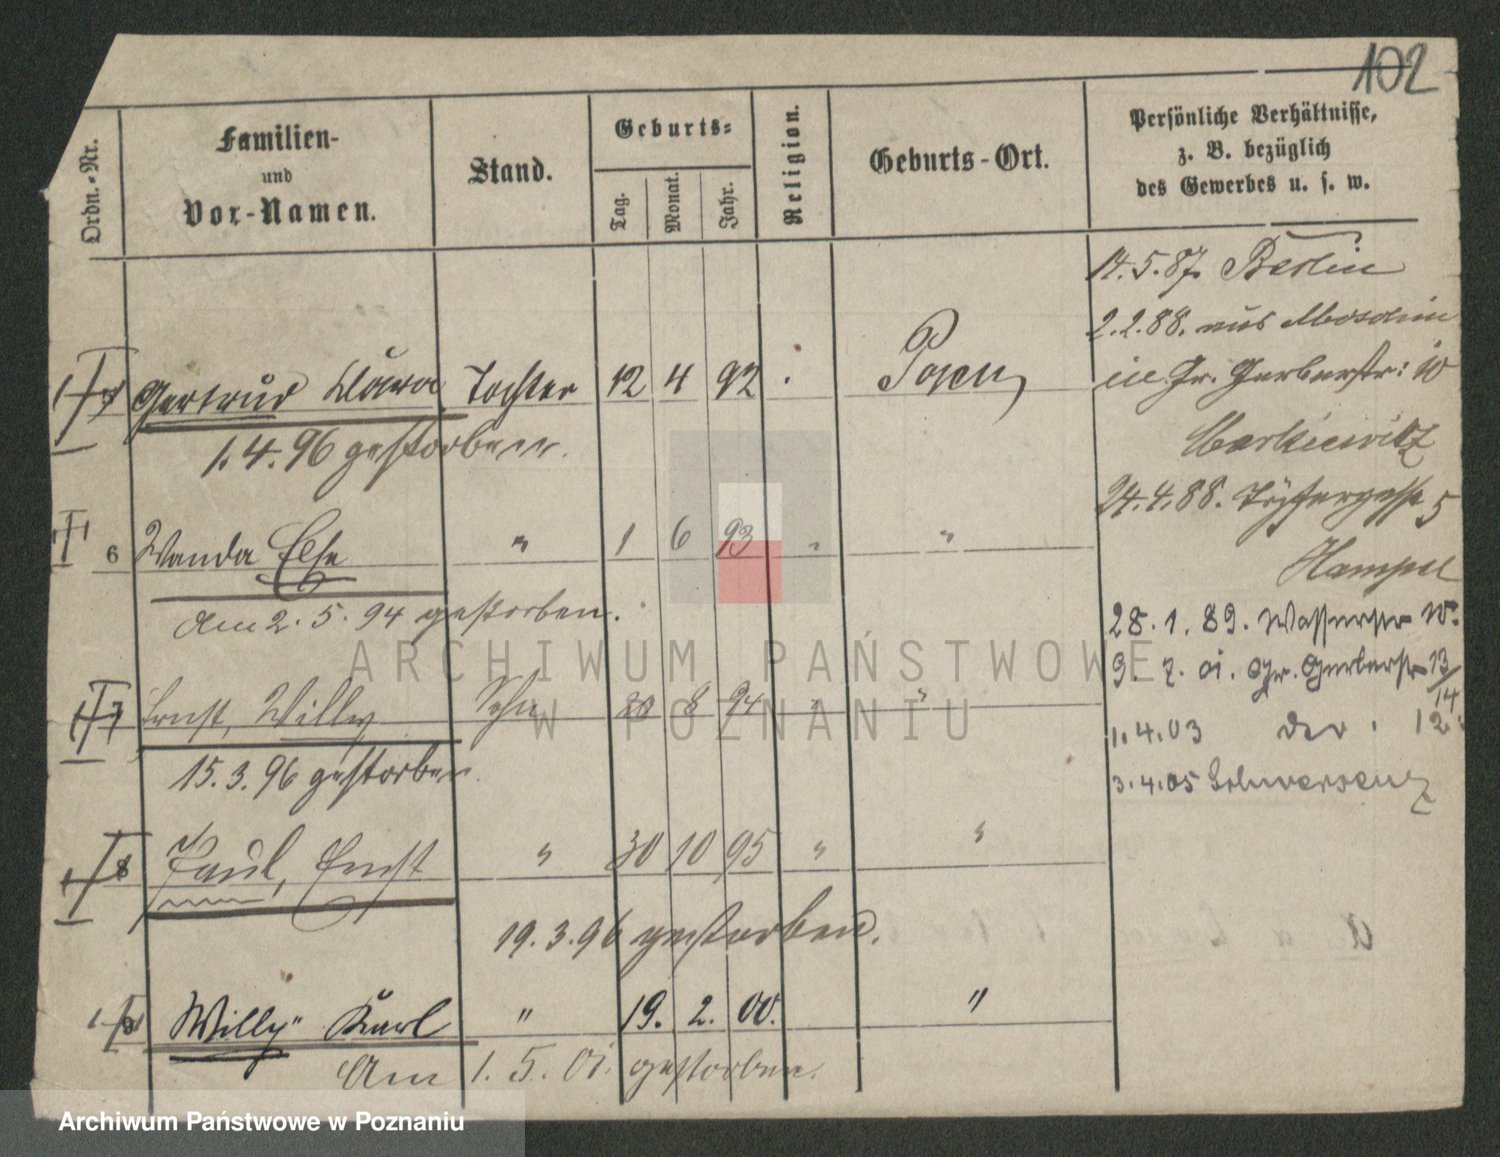 102
Ordn.-Nr.
Familien-
und
Vor-Namen.
Stand.
Geburts-
Tag.
Monat.
Jahr.
Religion.
Geburts-Ort.
Persönliche Verhältnisse,
z. B. bezüglich
des Gewerbes u. s. w.
14.5.87. Berlin
2.2.88. aus Moschin
in Gr. Gerberstr: 10
Markiewicz
24.4.88. Töpfergasse 5
Hampel
28.1.89. Wasserstr
9. 7. 01. Gr. Gerberstr 13/14
1.4.03 12
3.4.05 Schwersenz
Gertrud Klara Tochter 12 4 92 Posen
1.4.96 gestorben.
6 Wanda Else " 1 6 93 " "
Am 2.5.94 gestorben.
7 Ernst, Willy Sohn 20 8 94 " "
15.3.96 gestorben.
8 Paul, Ernst " 30 10 95 " "
19.3.96 gestorben.
9 Willy" Karl " 19. 2. 00. "
Am 1.5.01. gestorben.
ARCHIWUM PAŃSTWOWE
W POZNANIU
Archiwum Państwowe w Poznaniu